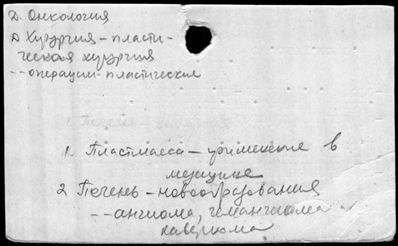 Д. Онкология
Д Хирургия - пласти-
ческая хирургия
-- операции пластические
1. Пластмасса - применение в
медицине
2 Печень - новообразования
-- ангиома, гемангиома
кавернома